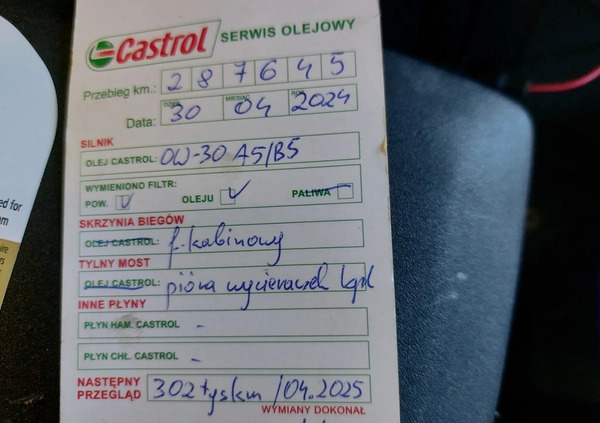 Castrol SERWIS OLEJOWY
Przebieg km.: 287645
DZIEŃ MIESIĄC ROK
Data: 30 04 2024
SILNIK
OLEJ CASTROL: 0W-30 A5/B5
WYMIENIONO FILTR:
POW. OLEJU PALIWA
SKRZYNIA BIEGÓW
OLEJ CASTROL: f. kabinowy
TYLNY MOST
OLEJ CASTROL: pióra wycieraczek kpl
INNE PŁYNY
PŁYN HAM. CASTROL -
PŁYN CHŁ. CASTROL -
NASTĘPNY
PRZEGLĄD 302 tyskm /04.2025
WYMIANY DOKONAŁ
ed for
m